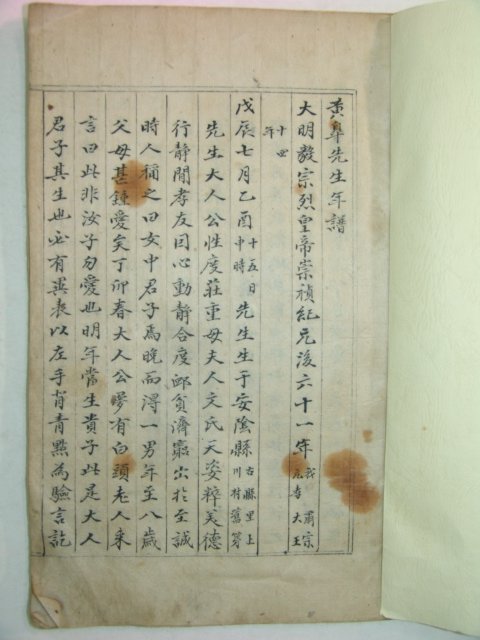 黄皐先生年譜
大明毅宗烈皇帝崇禎紀元後六十一年我肅宗元孝大王
十四年
戊辰七月乙酉十五日申時先生生于安陰縣古縣里上川村舊第
先生大人公性度莊重母夫人文氏天姿粹美德
行静閒孝友因心動静合度邺貧濟窮出於至誠
時人稱之曰女中君子焉晩而得一男年至八歲
父母甚鍾愛矣丁卯春大人公夢有白頭老人来
言曰此非汝子勿愛也明年當生貴子此是大人
君子其生也必有異表以左手肖青點為驗言訖